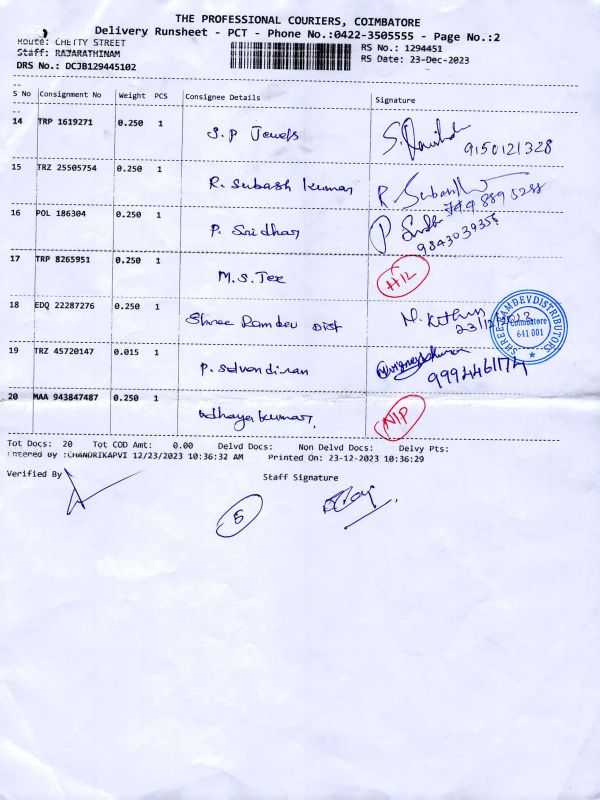 THE PROFESSIONAL COURIERS, COIMBATORE
Delivery Runsheet - PCT - Phone No.:0422-3505555 - Page No.:2
Route: CHETTY STREET
Staff: RAJARATHINAM
DRS No.: DCJB129445102
RS No.: 1294451
RS Date: 23-Dec-2023
S No Consignment No Weight PCS Consignee Details Signature
14 TRP 1619271 0.250 1 S.P Jewels 9150121328
15 TRZ 25505754 0.250 1 R. Subash Kumar R
16 POL 186304 0.250 1 P. Sridhar P 9843039356
17 TRP 8265951 0.250 1 M.S. Tex
18 EDQ 22287276 0.250 1 Shree Ramdev Dist 23/12/2023
SHREE RAMDEV DISTRIBUTORS
Coimbatore
641 001
19 TRZ 45720147 0.015 1
20 MAA 943847487 0.250 1
Tot Docs: 20 Tot COD Amt: 0.00 Delvd Docs: Non Delvd Docs: Delvy Pts:
Entered By :CHANDRIKAPVI 12/23/2023 10:36:32 AM Printed On: 23-12-2023 10:36:29
Verified By
Staff Signature